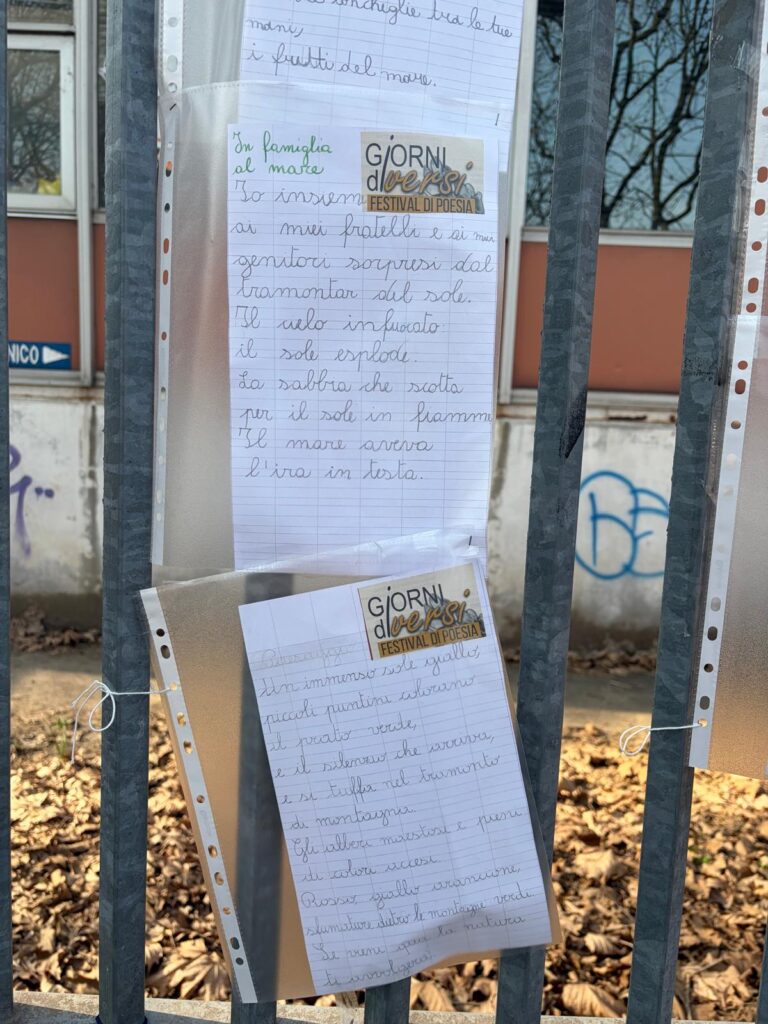 conchiglie tra le tue
mani,
i frutti del mare.
In famiglia
al mare
GiORNI
diversi
FESTIVAL DI POESIA
Io insiem
ai miei fratelli e ai miei
genitori sorpresi dal
tramontar del sole.
Il cielo infuocato
il sole esplode.
La sabbia che scotta
per il sole in fiamme
Il mare aveva
l'ira in testa.
NICO
GiORNI
diversi
FESTIVAL DI POESIA
Paesaggio
Un immenso sole giallo,
piccoli puntini colorano
il prato verde,
e il silenzio che arriva,
e si tuffa nel tramonto
di montagna.
Gli alberi maestosi e pieni
di colori accesi.
Rosso, giallo arancione,
sfumature dietro le montagne verdi.
Se vieni qui la natura
ti avvolgerà.